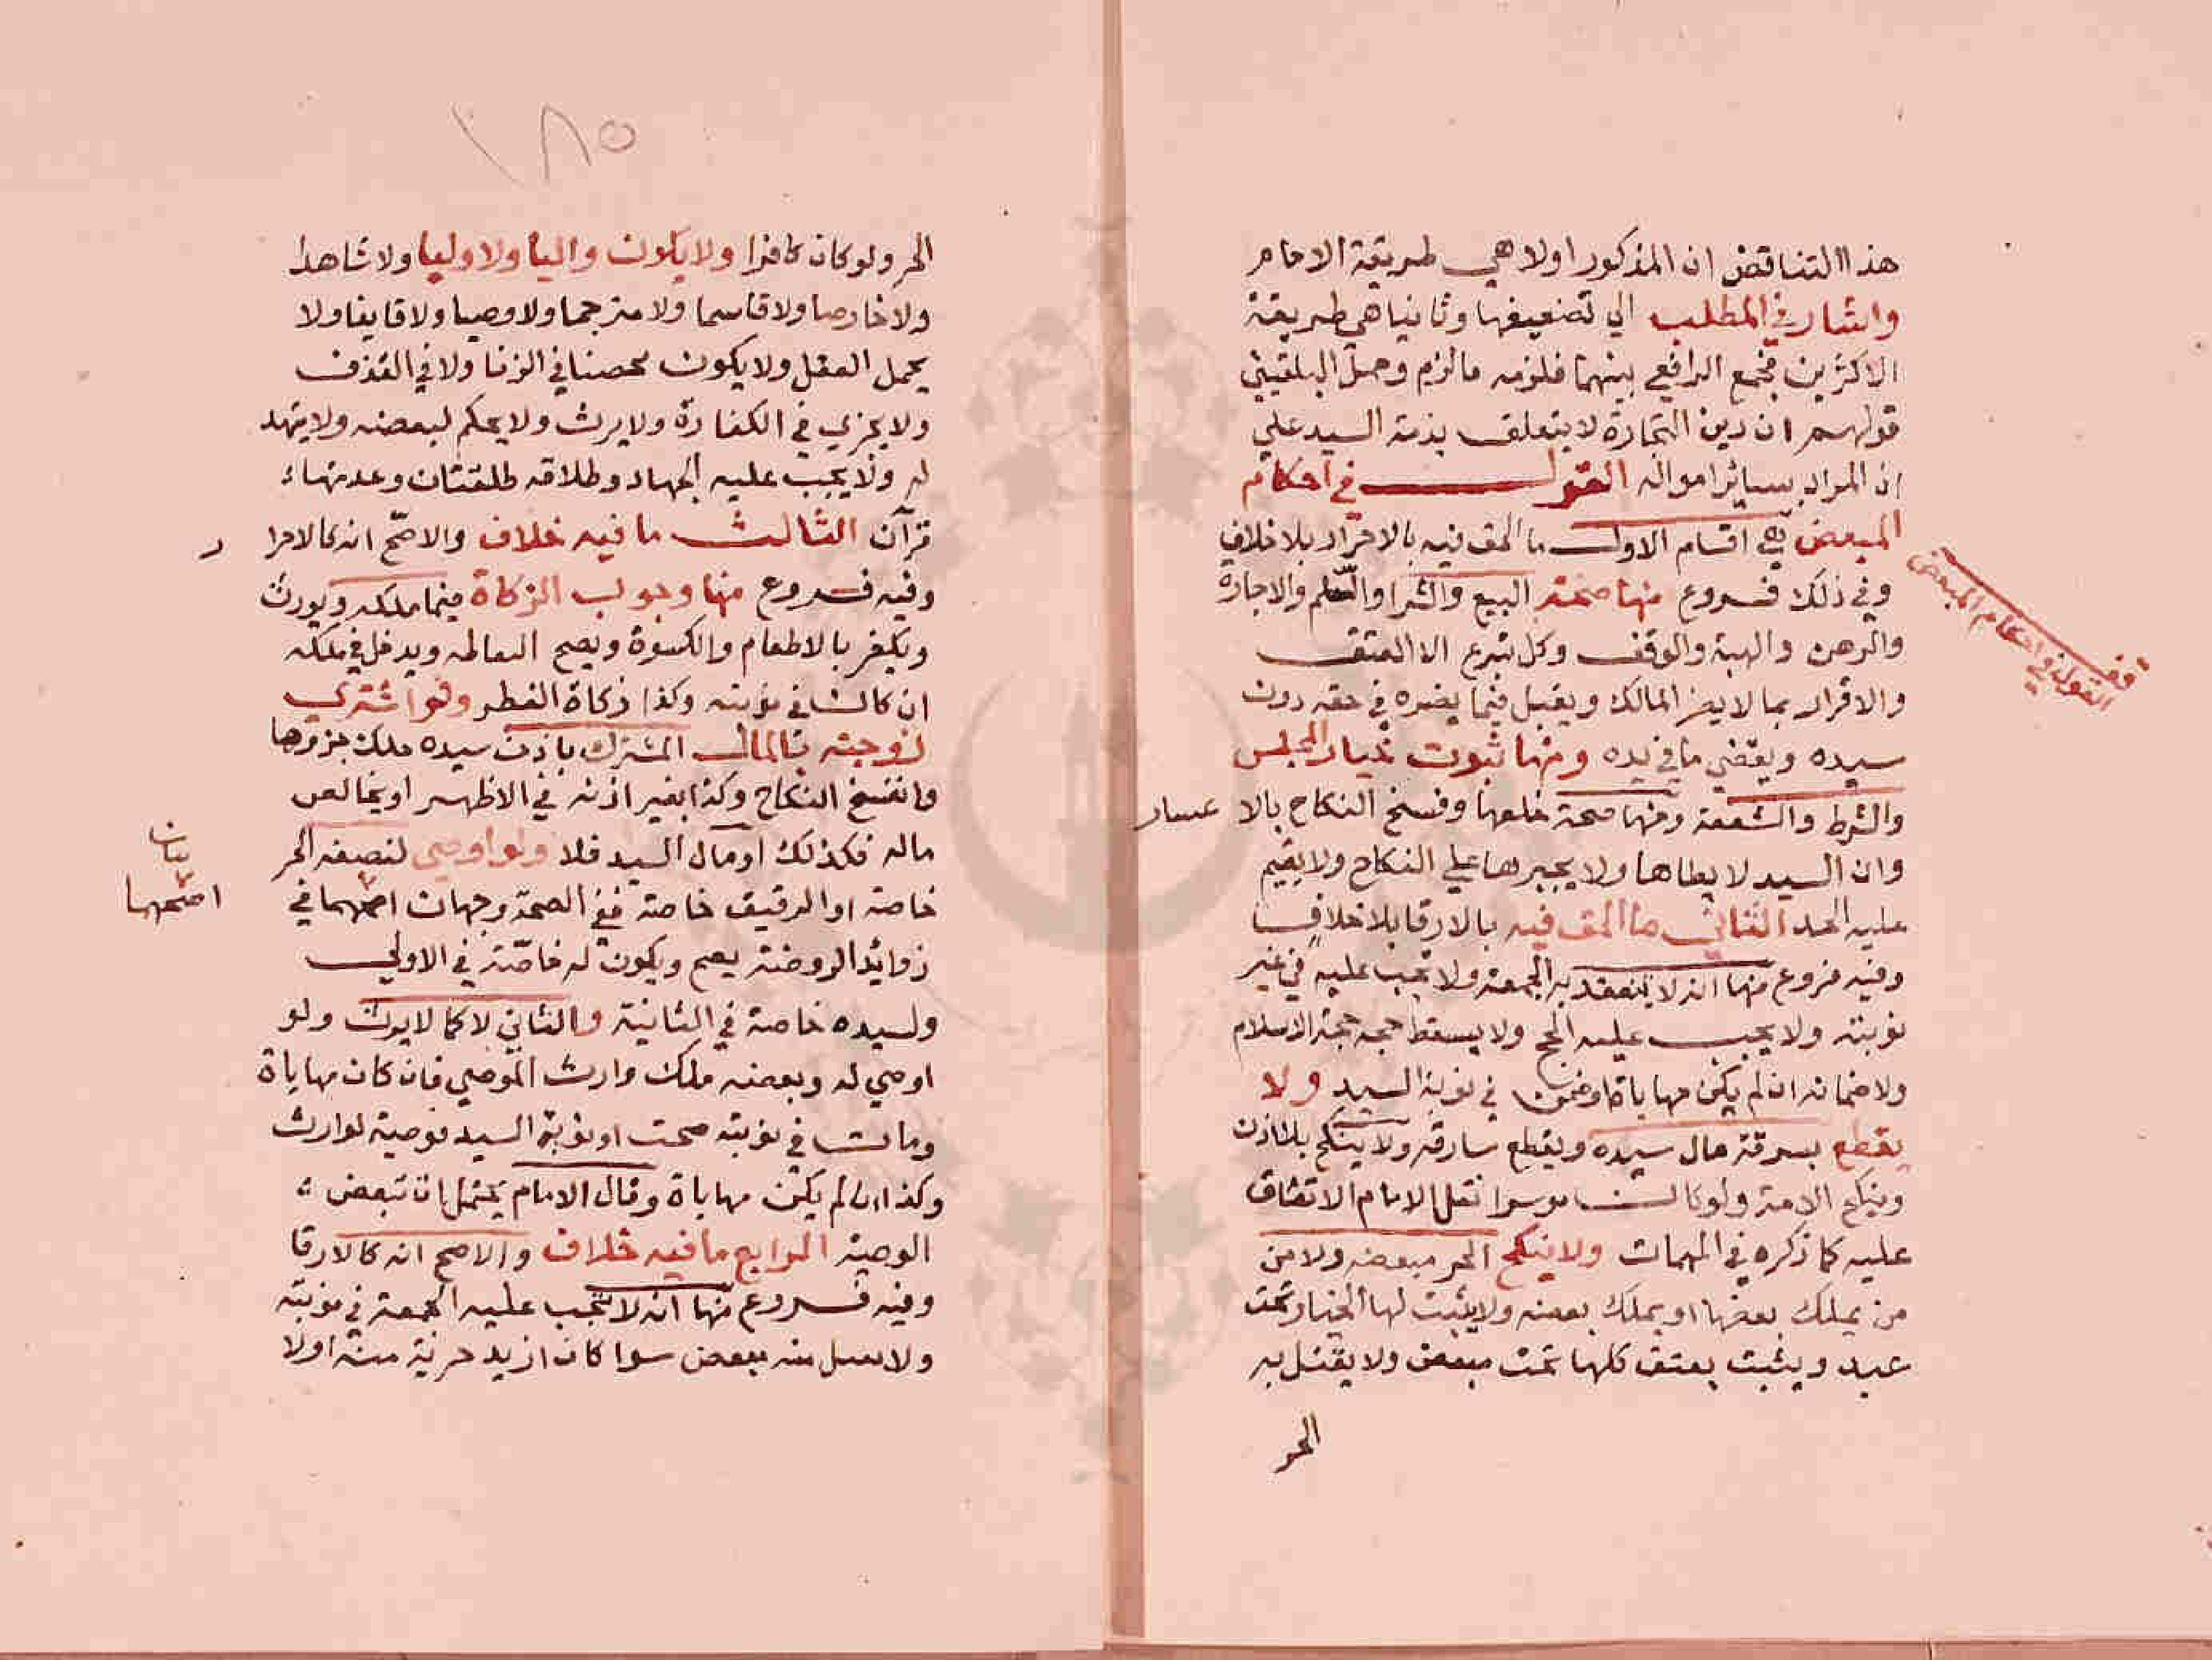 هذا التناقض ان المذكور اولا هي طريقة الامام
واشار في المطلب الي تضعيفها وثانيا هي طريقة
الاكثرين فجمع الرافعي بينهما فلزمه مالزم وحمل البلقيني
قولهم ان دين التجارة لا يتعلق بذمة السيد علي
ان المراد بسائر امواله القول في احكام
المبعض هي اقسام الاول ما الحق فيه بالاحرار بلا خلاف
وفي ذلك فروع منها صحة البيع والشرا والسلم والاجارة
والرهن والهبة والوقف وكل تبرع الا العتق
والاقرار بما لا يضر المالك ويقبل فيما يضره في حقه دون
سيده ويقضي مما في يده ومنها ثبوت خيار المجلس
والشرط والشفعة ومنها صحة خلعها وفسخ النكاح بالاعسار
وان السيد لا يطاها ولا يجبرها علي النكاح ولا يقيم
عليه الحد الثاني ما الحق فيه بالارقا بلا خلاف
وفيه فروع منها انه لا ينعقد به الجمعة ولا تجب عليه في غير
نوبته ولا يجب عليه الحج ولا يسقط حجه حجة الاسلام
ولا ضمانه ان لم يكن مهاياة او ضمن في نوبة السيد ولا
يقطع بسرقة مال سيده ويقطع سارقه ولا ينكح بلا اذن
وينكح الامة ولو كان موسرا نقل الامام الاتفاق
عليه كما ذكره في المهمات ولا ينكح الحر مبعضه ولا من
من يملك بعضها او يملك بعضه ولا يثبت لها الخيار تحت
عبد ويثبت بعتق كلها تحت مبعض ولا يقتل به
الحر
قف
القول في احكام المبعض
١٨٥
الحر ولو كان كافرا ولا يكون واليا ولا وليا ولا شاهدا
ولا خارصا ولا قاسما ولا مترجما ولا وصيا ولا قايفا ولا
يحمل العقل ولا يكون محصنا في الزنا ولا في القذف
ولا يجزي في الكفارة ولا يرث ولا يحكم لبعضه ولا يشهد
له ولا يجب عليه الجهاد وطلاقه طلقتان وعدتها
قرآن الثالث ما فيه خلاف والاصح انه كالاحرا ر
وفيه فروع منها وجوب الزكاة فيما ملكه ويورث
ويكفر بالاطعام والكسوة ويصح التقاطه ويدخل في ملكه
ان كان في نوبته وكذا زكاة الفطر ولو اشتري
زوجته بالمال المشترك باذن سيده ملك جزوها
وانفسخ النكاح وكذا بغير اذنه في الاظهر او بخالص
ماله فكذلك او مال السيد فلا ولو اوصي لنصفه الحر
خاصة او الرقيق خاصة ففي الصحة وجهان اصحهما في
زوائد الروضة يصح ويكون له خاصة في الاولي
ولسيده خاصة في الثانية والثاني لا كما لا يورث ولو
اوصي له وبعضه ملك وارث الموصي فان كان مهاياة
ومات في نوبته صحت او نوبة السيد فوصية لوارث
وكذا ان لم يكن مهاياة وقال الامام يحتمل ان تبعض
الوصية الرابع ما فيه خلاف والاصح انه كالارقا
وفيه فروع منها انه لا تجب عليه الجمعة في نوبته
ولا يقتل منه مبعض سوا كان ازيد حرية منه او لا
بيان
اصحهما